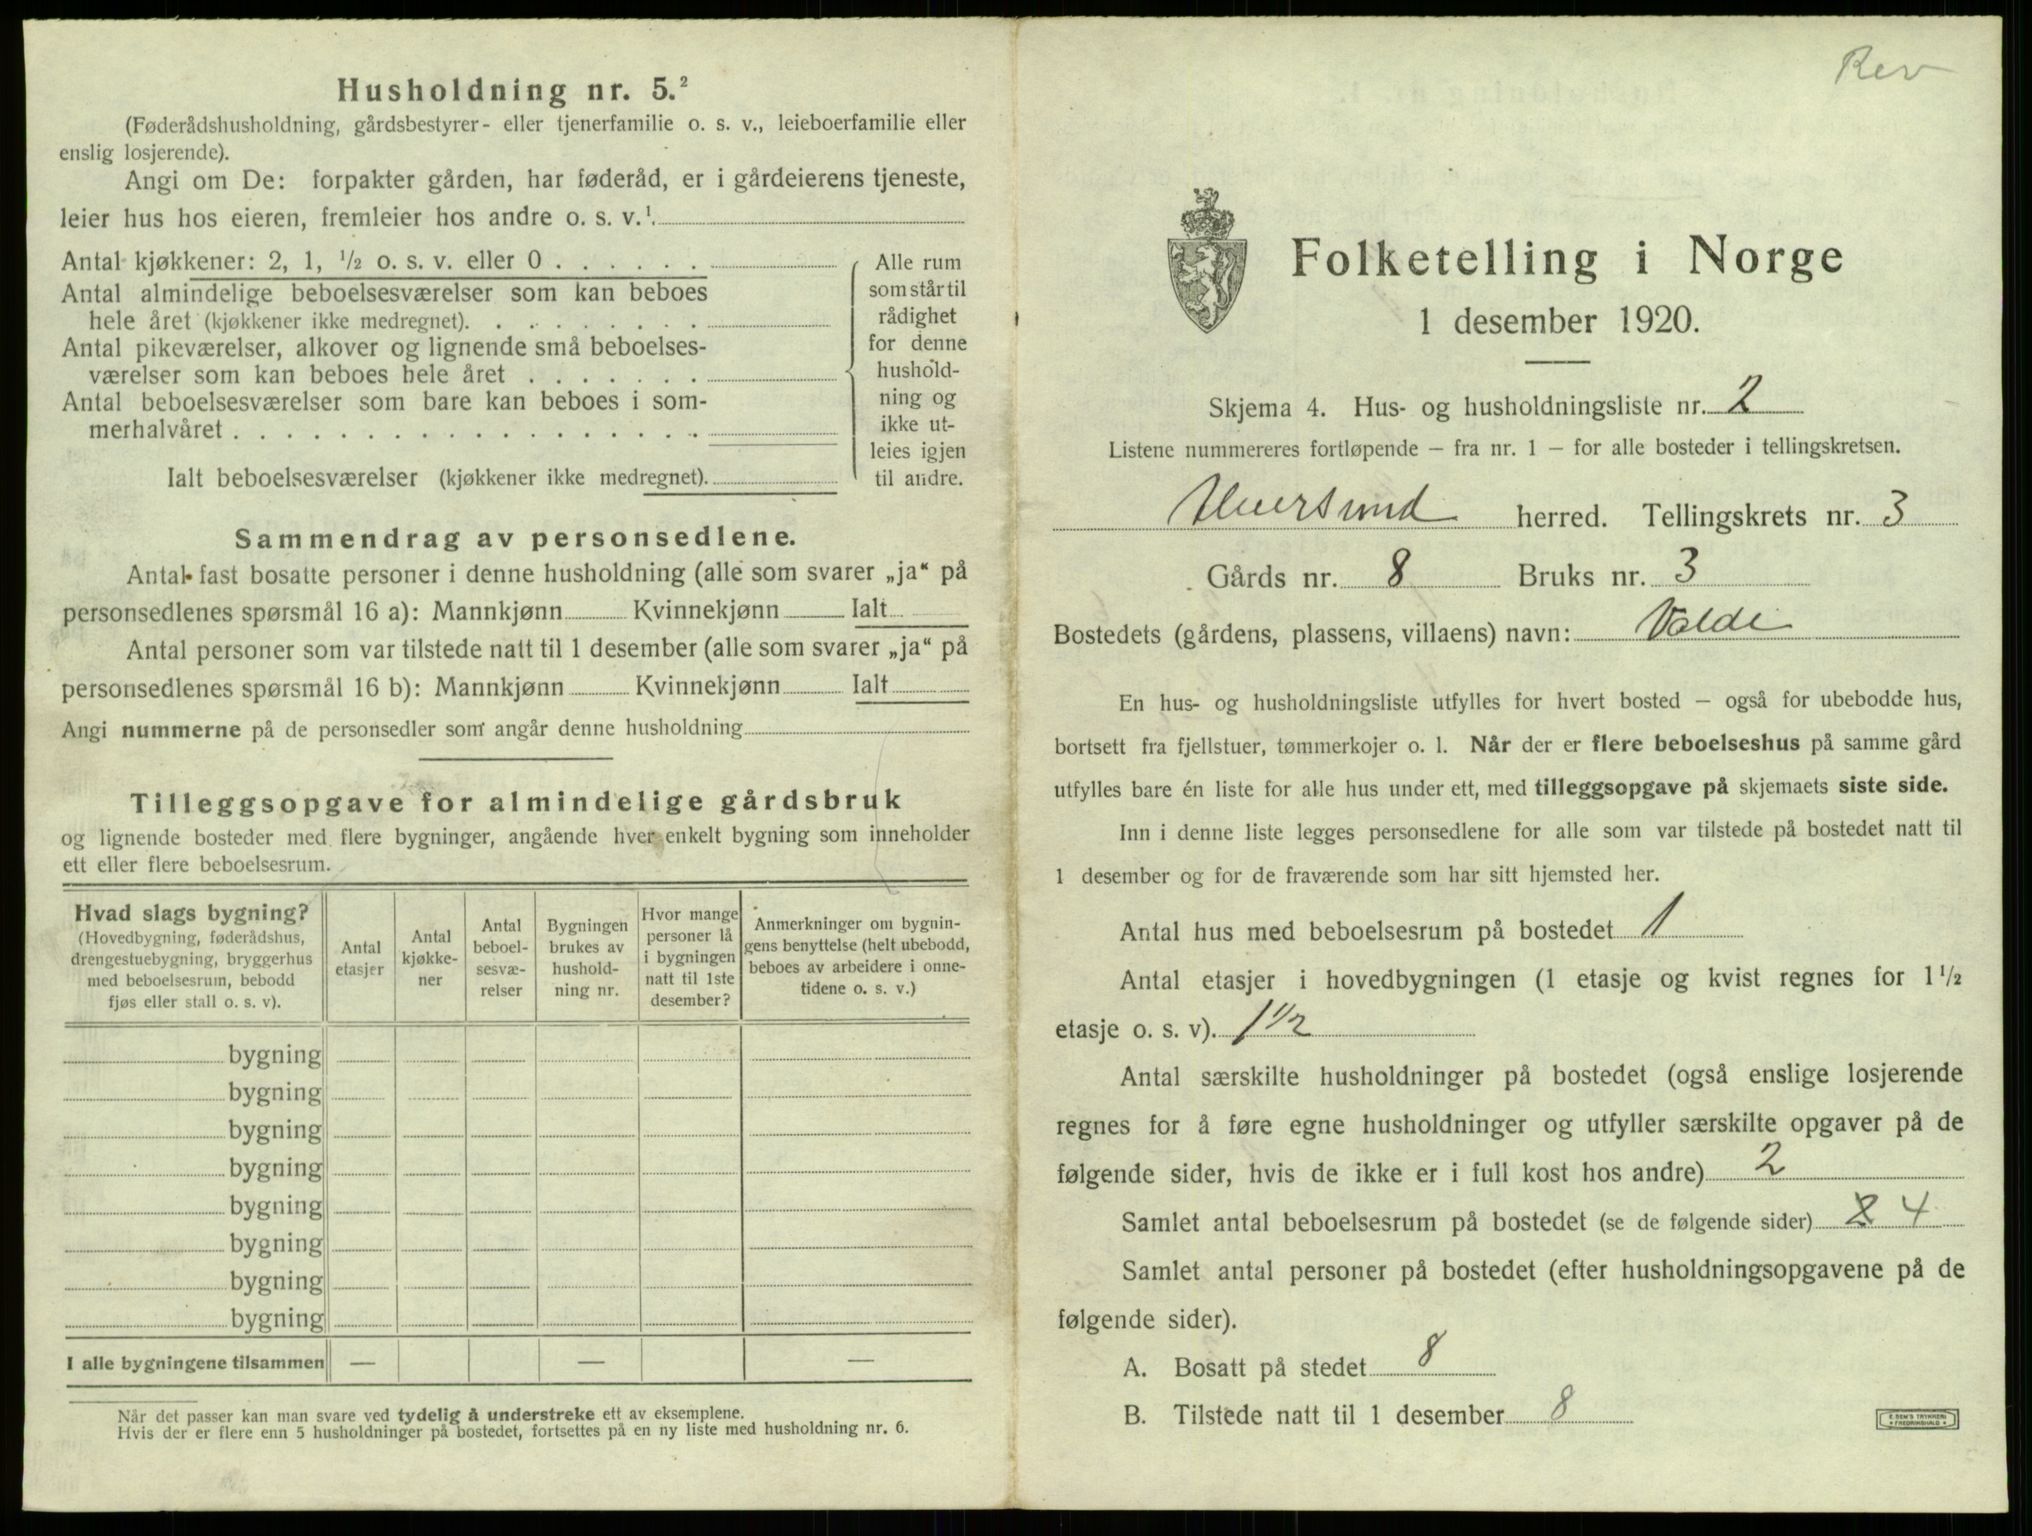 Husholdning nr. 5.²
(Føderådshusholdning, gårdsbestyrer- eller tjenerfamilie o. s. v., leieboerfamilie eller
enslig losjerende).
Angi om De: forpakter gården, har føderåd, er i gårdeierens tjeneste,
leier hus hos eieren, fremleier hos andre o. s. v.¹
Antal kjøkkener: 2, 1, ½ o. s. v. eller 0
Antal almindelige beboelsesværelser som kan beboes
hele året (kjøkkener ikke medregnet).
Antal pikeværelser, alkover og lignende små beboelses-
værelser som kan beboes hele året
Antal beboelsesværelser som bare kan beboes i som-
merhalvåret
Ialt beboelsesværelser (kjøkkener ikke medregnet).
Alle rum
som står til
rådighet
for denne
hushold-
ning og
ikke ut-
leies igjen
til andre.
Sammendrag av personsedlene.
Antal fast bosatte personer i denne husholdning (alle som svarer „ja“ på
personsedlenes spørsmål 16 a): Mannkjønn Kvinnekjønn Ialt
Antal personer som var tilstede natt til 1 desember (alle som svarer „ja“ på
personsedlenes spørsmål 16 b): Mannkjønn Kvinnekjønn Ialt
Angi nummerne på de personsedler som angår denne husholdning
Tilleggsopgave for almindelige gårdsbruk
og lignende bosteder med flere bygninger, angående hver enkelt bygning som inneholder
ett eller flere beboelsesrum.
Hvad slags bygning?
(Hovedbygning, føderådshus,
drengestuebygning, bryggerhus
med beboelsesrum, bebodd
fjøs eller stall o. s. v).
Antal
etasjer
Antal
kjøkke-
ner
Antal
beboel-
sesvæ-
relser
Bygningen
brukes av
hushold-
ning nr.
Hvor mange
personer lå
i bygningen
natt til 1ste
desember?
Anmerkninger om bygnin-
gens benyttelse (helt ubebodd,
beboes av arbeidere i onne-
tidene o. s. v.)
bygning
bygning
bygning
bygning
bygning
bygning
bygning
bygning
I alle bygningene tilsammen — — —
Når det passer kan man svare ved tydelig å understreke ett av eksemplene.
Hvis der er flere enn 5 husholdninger på bostedet, fortsettes på en ny liste med husholdning nr. 6.
Rev
Folketelling i Norge
1 desember 1920.
Skjema 4. Hus- og husholdningsliste nr. 2
Listene nummereres fortløpende – fra nr. 1 – for alle bosteder i tellingskretsen.
herred. Tellingskrets nr. 3
Gårds nr. 8 Bruks nr. 3
Bostedets (gårdens, plassens, villaens) navn: Valde
En hus- og husholdningsliste utfylles for hvert bosted – også for ubebodde hus,
bortsett fra fjellstuer, tømmerkojer o. l. Når der er flere beboelseshus på samme gård
utfylles bare én liste for alle hus under ett, med tilleggsopgave på skjemaets siste side.
Inn i denne liste legges personsedlene for alle som var tilstede på bostedet natt til
1 desember og for de fraværende som har sitt hjemsted her.
Antal hus med beboelsesrum på bostedet 1
Antal etasjer i hovedbygningen (1 etasje og kvist regnes for 1 ½
etasje o. s. v). 1 ½
Antal særskilte husholdninger på bostedet (også enslige losjerende
regnes for å føre egne husholdninger og utfyller særskilte opgaver på de
følgende sider, hvis de ikke er i full kost hos andre) 2
Samlet antal beboelsesrum på bostedet (se de følgende sider) 4
Samlet antal personer på bostedet (efter husholdningsopgavene på de
følgende sider).
A. Bosatt på stedet 8
B. Tilstede natt til 1 desember 8
E. SEM'S TRYKKERI
FREDRIKSHALD